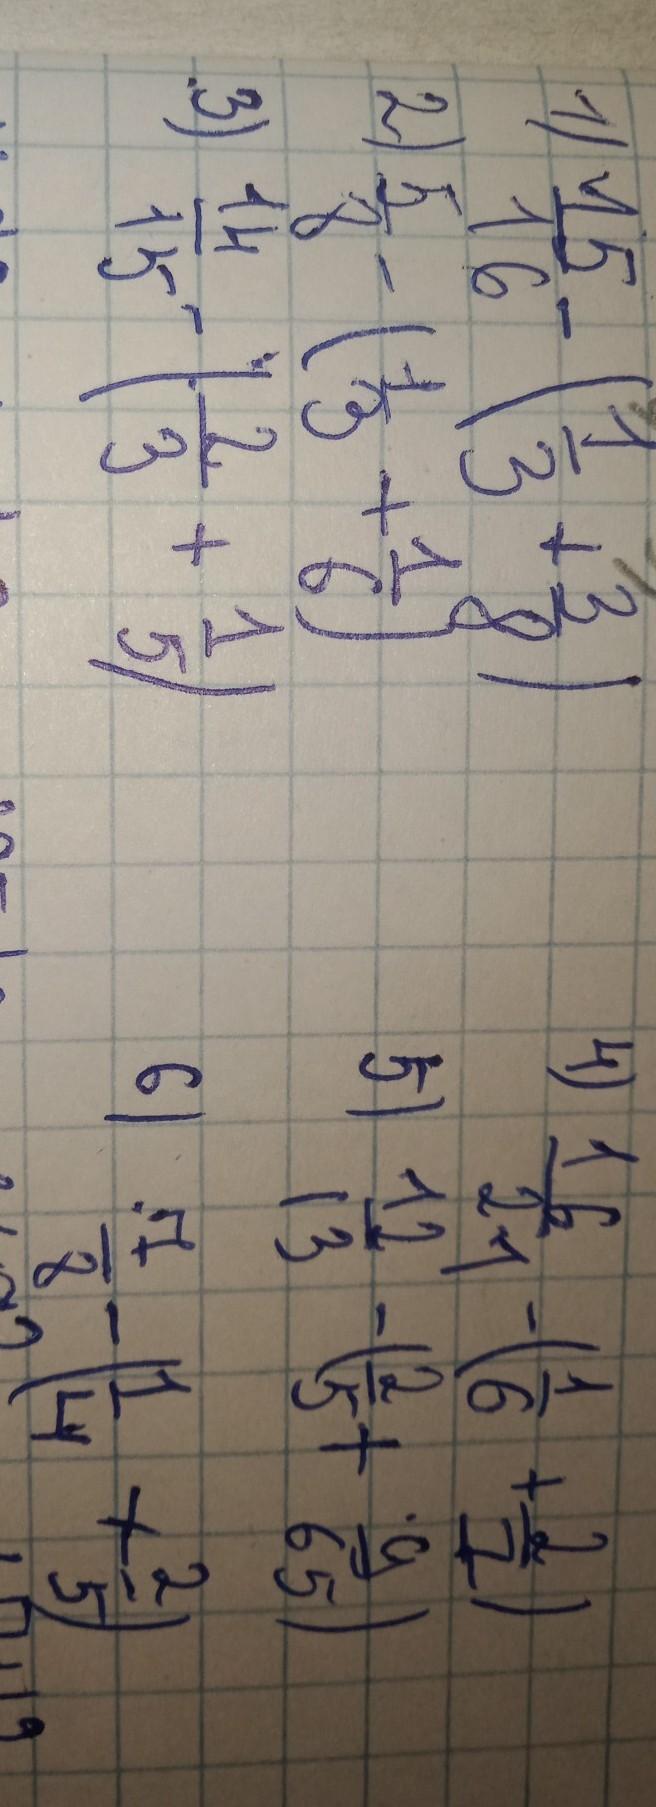 1) 15/16 - (1/3 + 3/8)
2) 5/8 - (1/3 + 1/6)
3) 14/15 - (2/3 + 1/5)
4) 16/21 - (1/6 + 2/7)
5) 12/13 - (2/5 + 9/65)
6) 7/8 - (1/4 + 2/5)